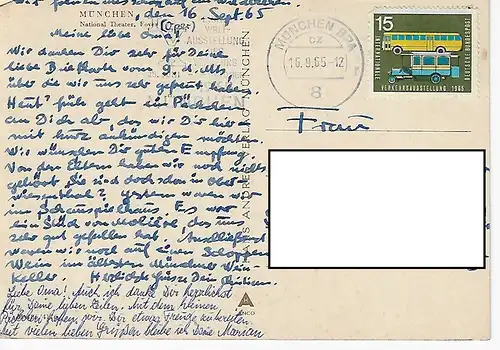 MÜNCHEN
National Theater, Foyer (Oper)
den 16. Sept. 65
Meine liebe Oma!
Wir danken Dir sehr für Deine
liebe Briefkarte vom
über die wir uns sehr gefreut haben.
Heut' früh geht ein Päckchen
an Dich ab, das wir Dir hier-
mit kurz ankündigen möchten.
Wir wünschen Dir guten Empfang.
Von den Eltern haben wir noch nichts
gehört. Sie sind doch schon in Ober-
wiesenthal? Gestern waren wir
im Schauspielhaus. Es war
ein Stück von Molière, das uns
sehr gut gefallen hat. Anschließend
waren wir noch auf einen Schoppen
Wein im ältesten Münchner Wein-
keller. Herzlichst grüsst Dein
Liebe Oma! Auch ich danke Dir herzlichst
für Deine lieben Zeilen. Mit dem kleinen
Päckchen hoffen wir, Dir etwas Freude zu bereiten.
Mit vielen lieben Grüßen bleibe ich Deine Marian
WELT-
AUSSTELLUNG
MÜNCHEN
VERLAG MÜNCHEN
MÜNCHEN BZA
cz
16.9.65-12
8
15
DEUTSCHE BUNDESPOST
VERKEHRSAUSSTELLUNG 1965
Frau
A